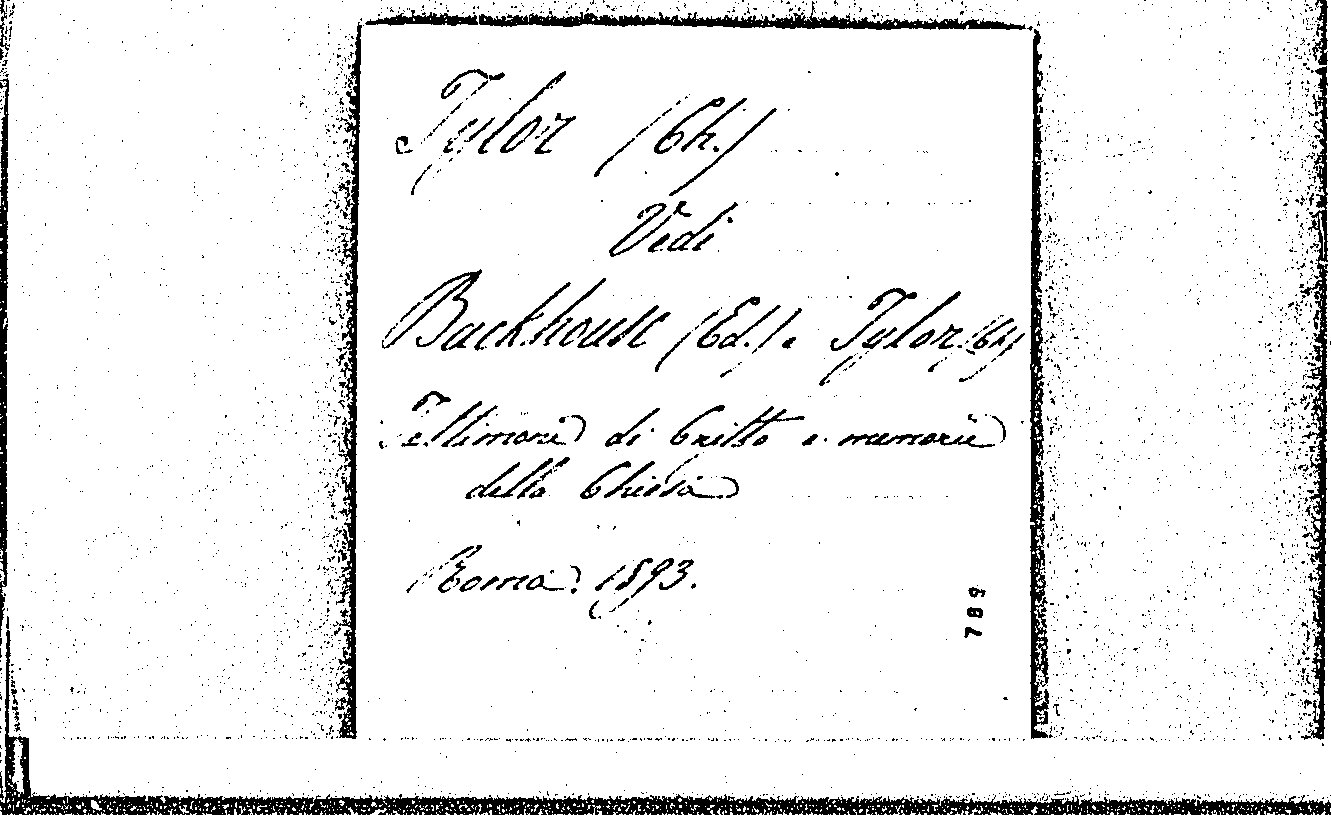 Tylor (Ch.)
Vedi
Backhouse (Ed.) e Tylor (Ch.)
Testimoni di Cristo e memorie
della Chiesa
Roma. 1893.
789